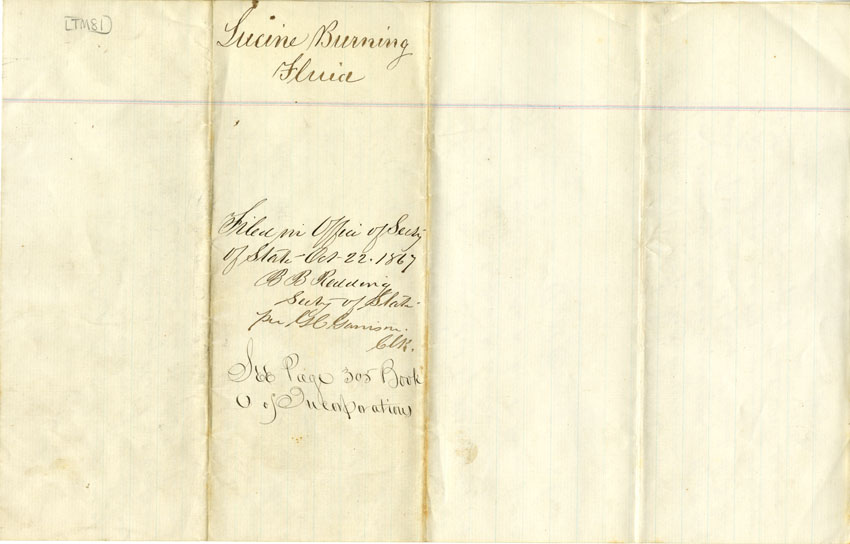 [TM81]
Lucine Burning
Fluid
Filed in Office of Secty
of State Oct. 22. 1867
B B Redding
Secty of State
per Garrison.
Clk.
See Page 305 Book
of Incorporations